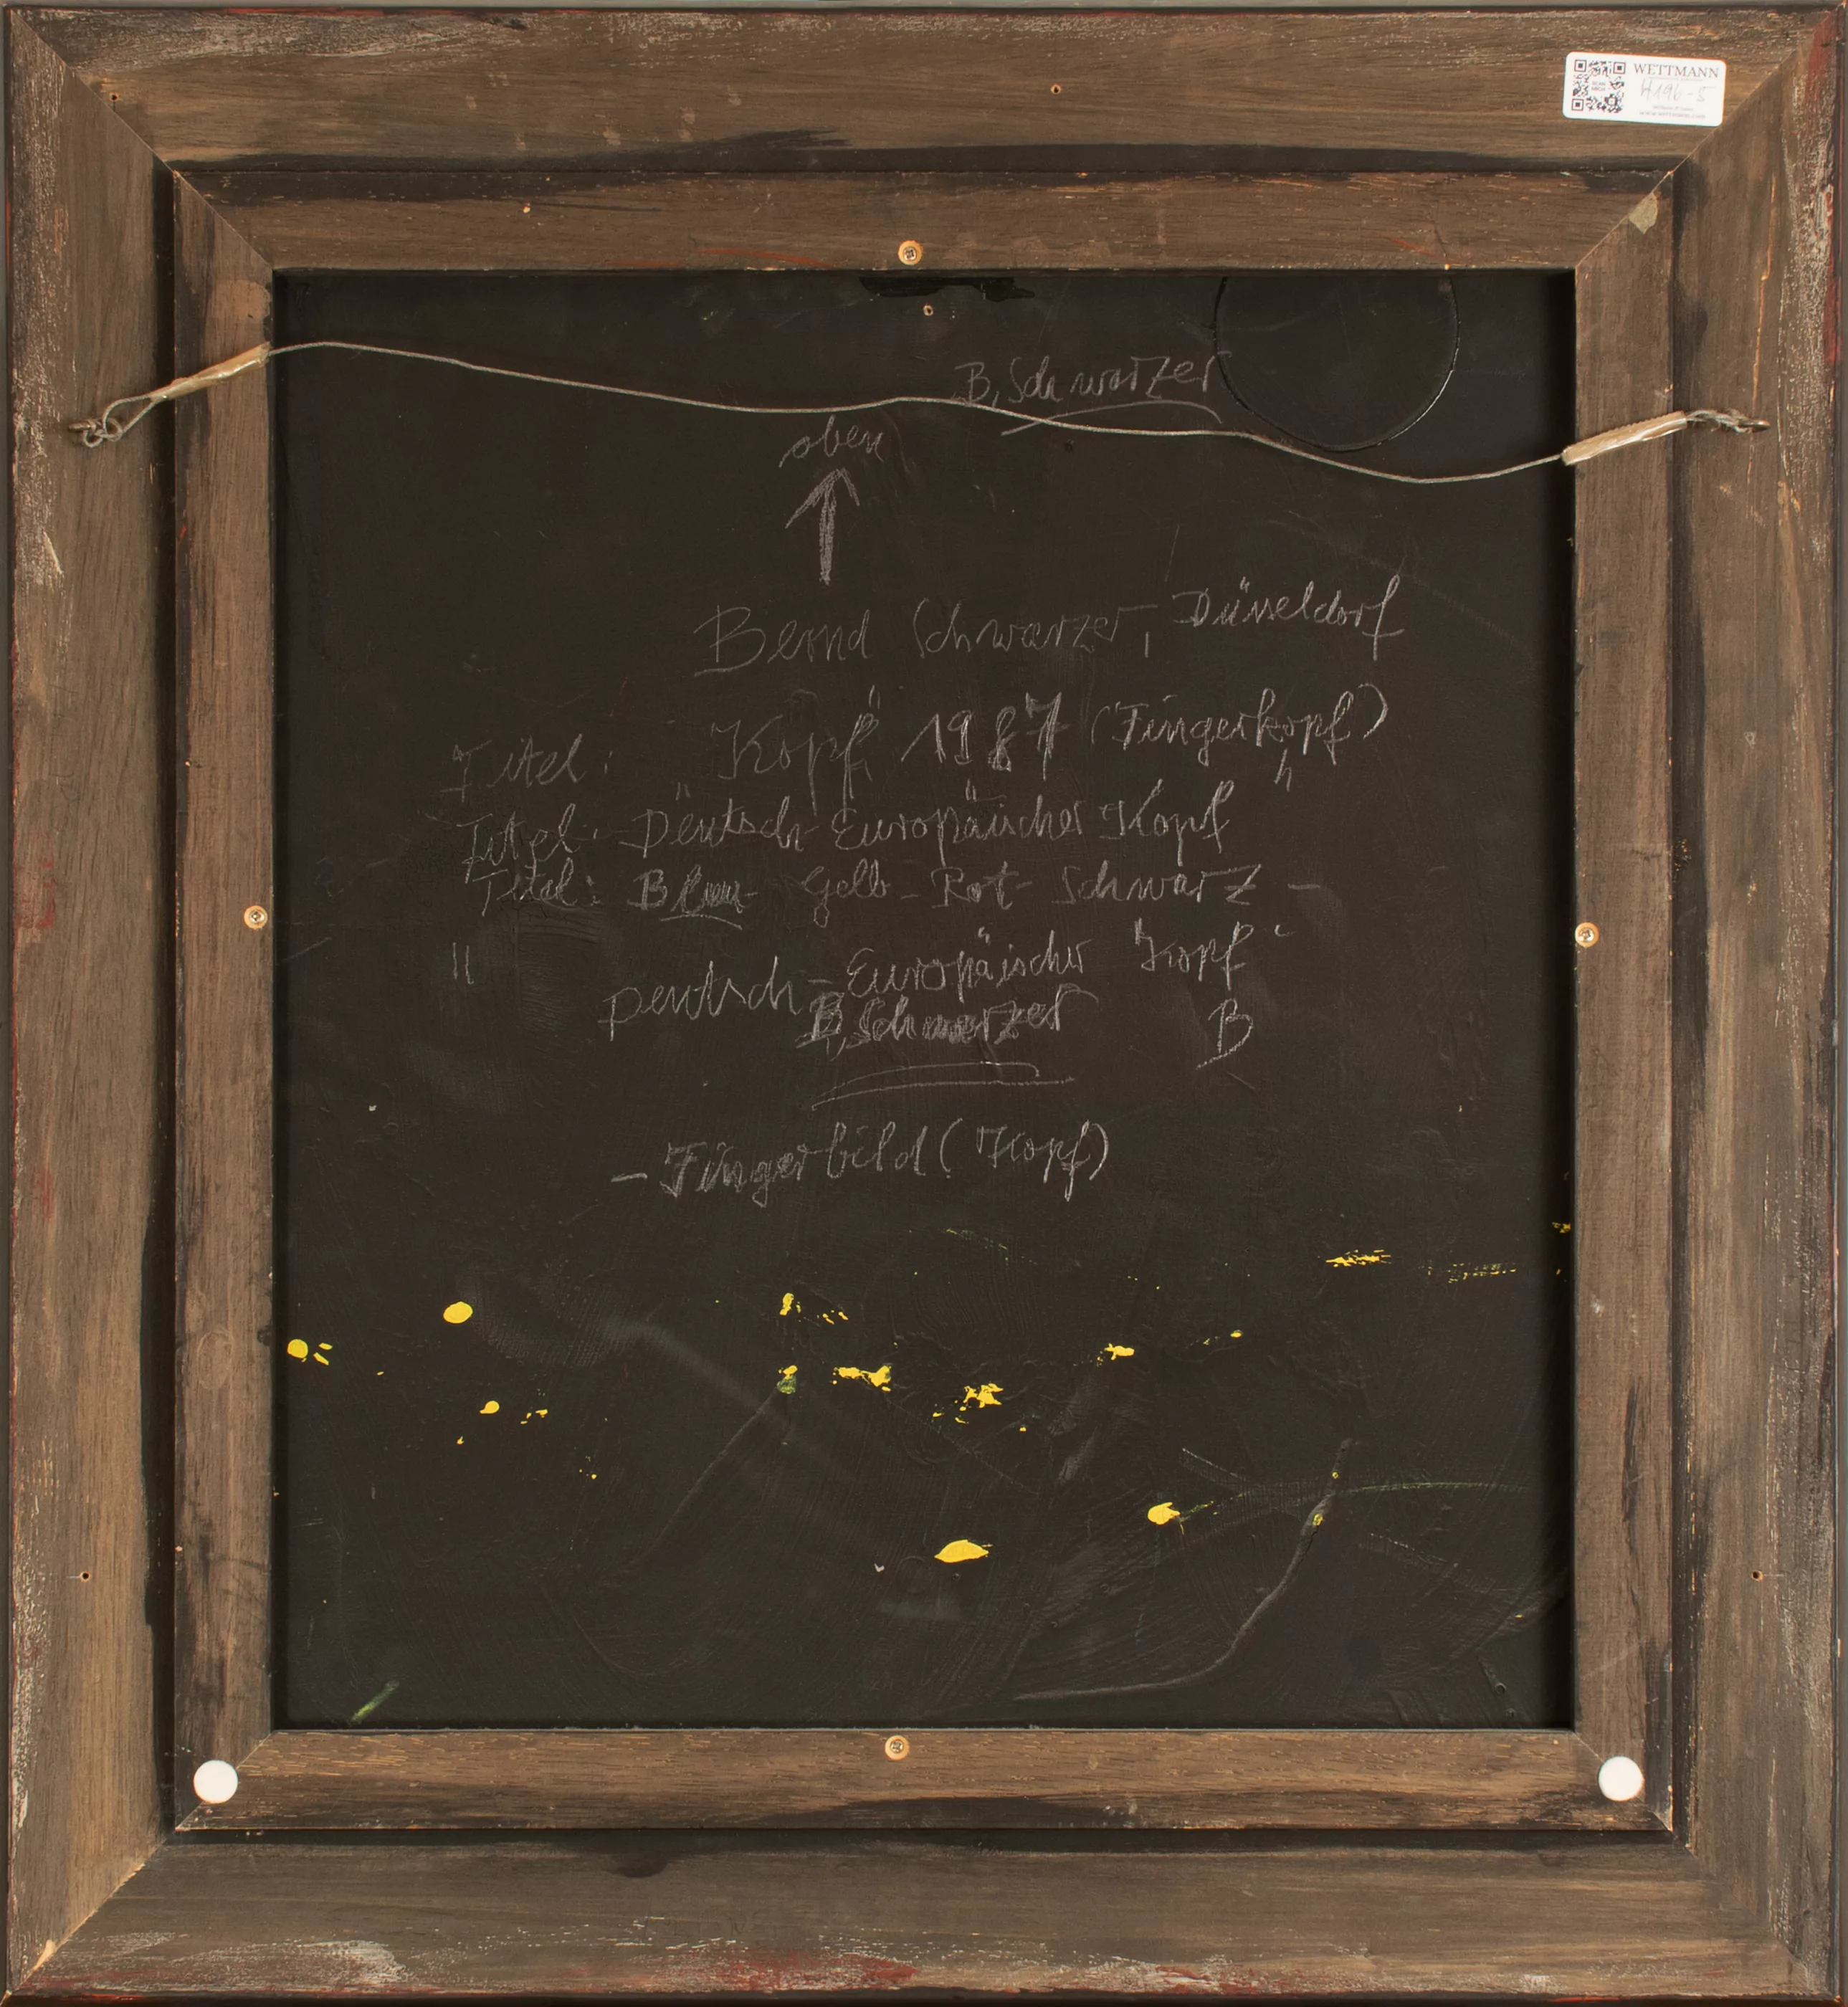 WETTMANN
4196-5
www.wettmann.com
B. Schwarzer
oben
Bernd Schwarzer, Düsseldorf
Titel: "Kopf" 1987 (Fingerkopf)
Titel: "Deutsch-Europäischer Kopf"
Titel: Blau- Gelb - Rot - Schwarz -
" Deutsch-Europäischer Kopf"
B. Schwarzer B
- Fingerbild (Kopf)